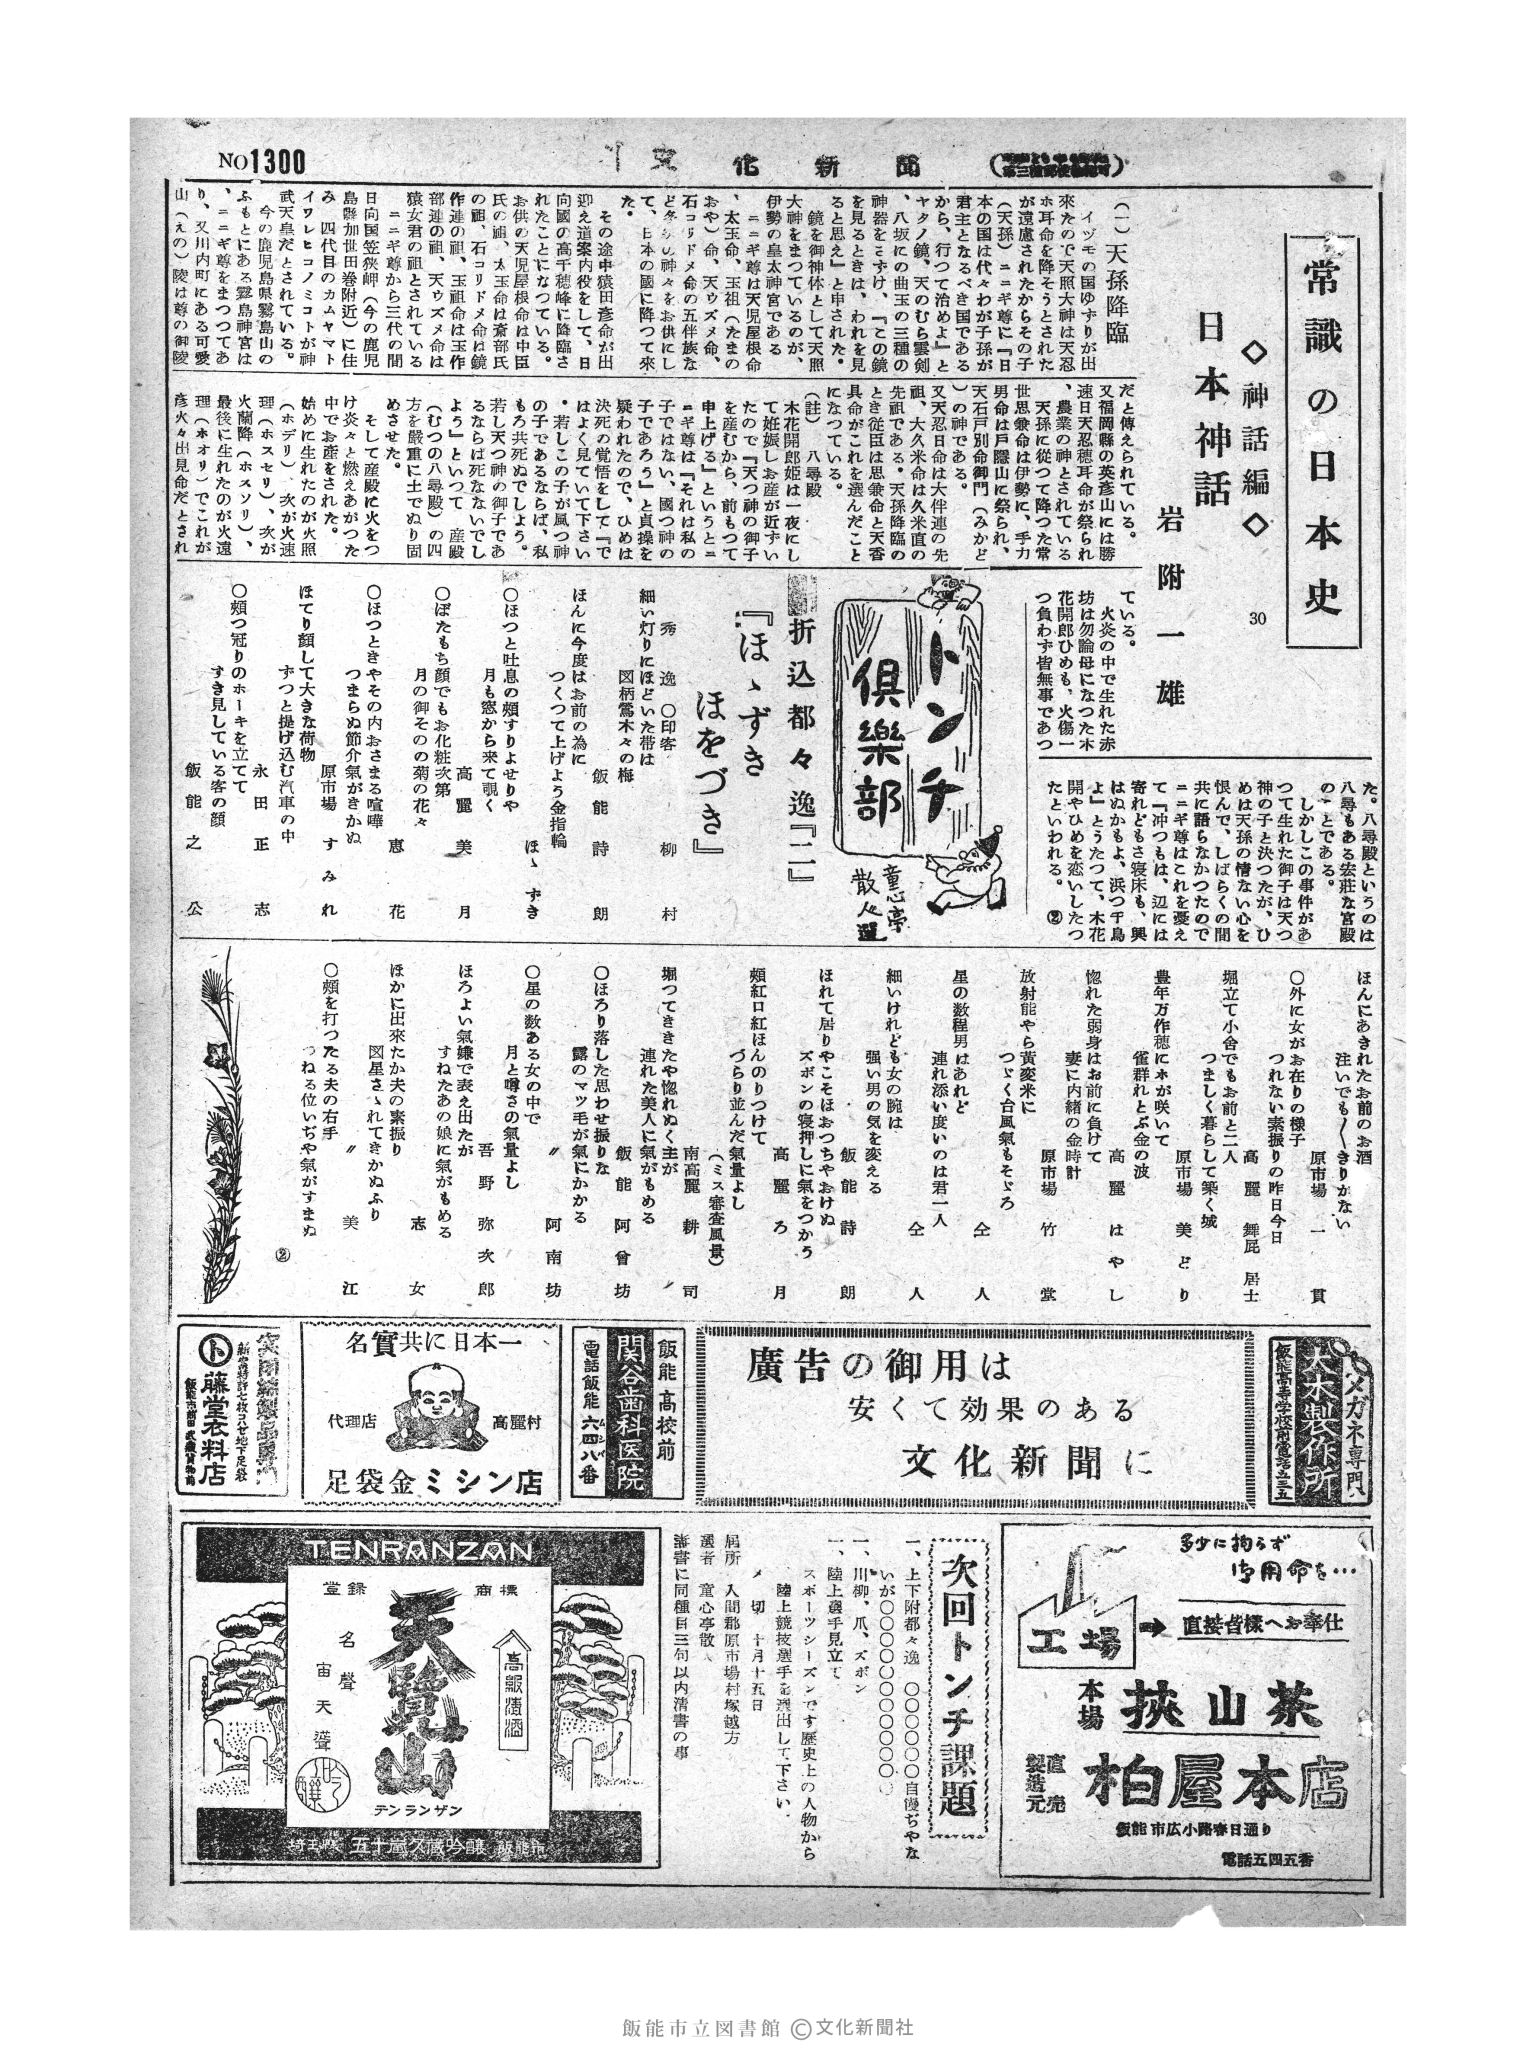 NO1300
文化新聞
常識の日本史
◇神話編◇
30
日本神話
岩附一雄
(一)天孫降臨
イヅモの国ゆずりが出
來たので天照大神は天忍
ホ耳命を降そうとされた
が遠慮されたからその子
(天孫)ニニギ尊に『日
本の国は代々わが子孫が
君主となるべき国である
から、行つて治めよ』と
ヤタノ鏡、天のむら雲剣
、八坂にの曲玉の三種の
神器をさずけ、『この鏡
を見るときは、われを見
ると思え』と申された。
鏡を御神体として天照
大神をまつているのが、
伊勢の皇太神宮である
ニニギ尊は天児屋根命
、太玉命、玉祖(たまの
おや)命、天ウズメ命、
石コリドメ命の五伴族な
ど多くの神々をお供にし
て、日本の國に降つて來
た。
その途中猿田彦命が出
迎え道案内役をして、日
向國の高千穂峰に降臨さ
れたことになつている。
お供の天児屋根命は中臣
氏の祖、太玉命は斎部氏
の祖、石コリドメ命は鏡
作連の祖、玉祖命は玉作
部連の祖、天ウズメ命は
猿女君の祖とされている
ニニギ尊から三代の間
日向国笠狭岬(今の鹿児
島縣加世田巻附近)に住
み、四代目のカムヤマト
イワレヒコノミコトが神
武天皇だとされている。
今の鹿児島県霧島山の
ふもとにある霧島神宮は
、ニニギ尊をまつつてあ
り、又川内町にある可愛
山(えの)陵は尊の御陵
だと傳えられている。
又福岡縣の英彦山には勝
速日天忍穂耳命が祭られ
、農業の神とされている
天孫に從つて降つた常
世思兼命は伊勢に、手力
男命は戸隱山に祭られ、
天石戸別命御門(みかど
)の神である。
又天忍日命は大伴連の先
祖、大久米命は久米直の
先祖である。天孫降臨の
とき従臣は思兼命と天香
具命がこれを選んだこと
になつている。
(註) 八尋殿
木花開郎姫は一夜にし
て妊娠しお産が近ずい
たので『天つ神の御子
を産むから、前もつて
申上げる』というとニ
ニギ尊は『それは私の
子ではない、國つ神の
子であろう』と貞操を
疑われたので、ひめは
決死の覚悟をして『で
はよく見ていて下さい
・若しこの子が國つ神
の子であるならば、私
もろ共死ぬでしよう。
若し天つ神の御子であ
るならば死なないでし
よう』といつて 産殿
(むつの八尋殿)の四
方を嚴重に土でぬり固
めさせた。
そして産殿に火をつ
け炎々と燃えあがつた
中でお産をされた。
始めに生れたのが火照
(ホデリ)、次が火速
理(ホスセリ)、次が
火蘭降(ホスソリ)、
最後に生れたのが火遠
理(ホオリ)でこれが
彦火々出見命だとされ
ている。
火炎の中で生れた赤
坊は勿論母になつた木
花開郎ひめも、火傷一
つ負わず皆無事であつ
た。八尋殿というのは
八尋もある宏荘な宮殿
のことである。
しかしこの事件があ
つて生れた御子は天つ
神の子と決つたが、ひ
めは天孫の情ない心を
恨んで、しばらくの間
共に語らなかつたので
ニニギ尊はこれを憂え
て『沖つもは、辺には
寄れどもさ寝床も、興
はぬかもよ、浜つ千鳥
よ』とうたつて、木花
開やひめを恋いしたつ
たといわれる。 ②
トンチ
倶樂部
童心亭
散人選
折込都々逸『二』
『ほゝずき
ほをづき』
秀逸 〇印客 柳村
細い灯りにほどいた帯は
図柄鶯木々の梅
飯能 詩朗
ほんに今度はお前の為に
つくつて上げよう金指輪
ほゝずき
〇ほつと吐息の頬すりよせりや
月も窓から来て覗く
高麗 美月
〇ぼたもち顔でもお化粧次第
月の御そのの菊の花々
恵花
〇ほつときやその内おさまる喧嘩
つまらぬ節介氣がきかぬ
原市場 すみれ
ほてり顔して大きな荷物
ずつと提げ込む汽車の中
永田 正志
〇頬つ冠りのホーキを立てて
ずき見している客の顔
飯能 之公
ほんにあきれたお前のお酒
注いでも〳〵きりがない
原市場 一貫
〇外に女がお在りの様子
つれない素振りの昨日今日
高麗 舞屁居士
堀立て小舎でもお前と二人
つましく暮らして築く城
原市場 美どり
豊年万作穂にホが咲いて
雀群れとぶ金の波
高麗 はやし
惚れた弱身はお前に負けて
妻に内緒の金時計
原市場 竹堂
放射能やら黄変米に
つゞく台風氣もそゞろ
仝人
星の数程男はあれど
連れ添い度いのは君一人
仝人
細いけれども女の腕は
强い男の気を変える
飯能 詩朗
ほれて居りやこそほおつちやおけぬ
ズボンの寝押しに氣をつかう
高麗 ろ月
頬紅口紅ほんのりつけて
づらり並んだ氣量よし
(ミス審査風景)
南高麗 耕司
堀つてききたや惚れぬく主が
連れた美人に氣がもめる
飯能 阿曾坊
〇ほろり落した思わせ振りな
露のマツ毛が氣にかかる
〃 阿南坊
〇星の数ある女の中で
月と噂さの氣量よし
吾野 弥次郎
ほろよい氣嫌で表え出たが
すねたあの娘に氣がもめる
志女
ほかに出來たか夫の素振り
図星さゝれてきかぬふり
〃 美江
〇頬を打つたる夫の右手
つねる位いぢや氣がすまぬ
②
メガネ専門
大木製作所
飯能高等学校前電話五三五
廣告の御用は
安くて効果のある
文化新聞に
飯能高校前
関谷歯科医院
電話飯能六四八番
名實共に日本一
代理店
高麗村
足袋金ミシン店
ト藤堂衣料店
新案特許七枚コハゼ地下足袋
飯能市前田 武蔵貨物前
多少に拘らず
御用命を…
工場
直接皆様へお奉仕
本場 狹山茶
直売
製造元
柏屋本店
飯能市広小路春日通り
電話五四五番
次回トンチ課題
一、上下附都々逸 〇〇〇〇〇自慢ぢやな
いが〇〇〇〇〇〇〇〇〇〇〇〇
一、川柳、爪、ズボン
一、陸上選手見立て
スポーツシーズンです歴史上の人物から
陸上競技選手を選出して下さい。
〆切 十月十五日
届所 入間郡原市場村塚越方
選者 童心亭散人
葉書に同種目三句以内清書の事
TENRANZAN
登録 商標
名聲宙天灌
天覽山
高級清酒
吟釀
テンランザン
埼玉縣 五十嵐久蔵吟醸 飯能市
飯能市立図書館 ©文化新聞社